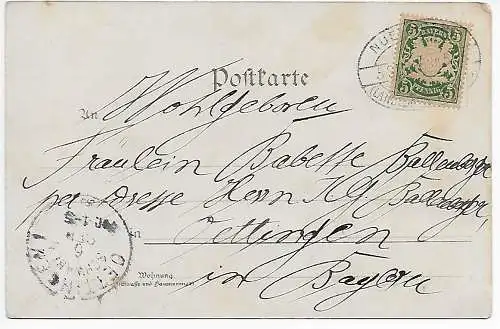 Postkarte
BAYERN
5 5
PFENNIG
NÜR
An Wohlgeboren
Fräulein Babette Ballenberger
per Adresse Herrn Ballenberger
in Oettingen
Wohnung
(Strasse und Hausnummer)
in Bayern
OETTINGEN